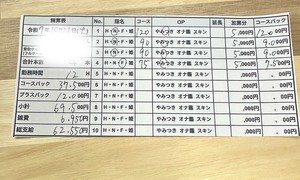 精算表 No. 指名 コース OP 延長 加算分 コースバック
令和7年10月 1 H・N・F・姫 120 やみつき オナ鑑 スキン 5,000円 12.000
2 H・N・F・姫 90 やみつき オナ鑑 スキン 5,000円 9.000
3 H・N・F・姫 90 やみつき オナ鑑 スキン 5,000円 9.000
合計本数 4 H・N・F・姫 75 やみつき オナ鑑 スキン 5,000円 7.500
勤務時間 12 H 5 H・N・F・姫 やみつき オナ鑑 スキン ,000円 .00
コースバック 37.500 6 H・N・F・姫 やみつき オナ鑑 スキン ,000円 .00
プラスバック 12.000 7 H・N・F・姫 やみつき オナ鑑 スキン ,000円 .00
小計 69.500 8 H・N・F・姫 やみつき オナ鑑 スキン ,000円 .00
雑費 6.950円 9 H・N・F・姫 やみつき オナ鑑 スキン ,000円 .00
総支給 62.550円 10 H・N・F・姫 やみつき オナ鑑 スキン ,000円 .00